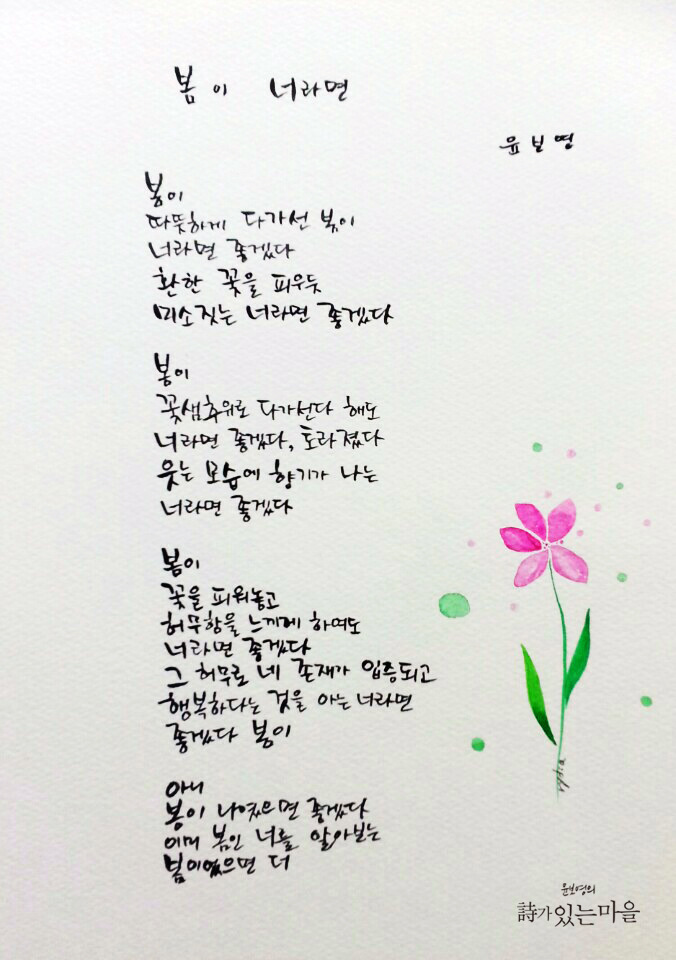 봄이 너라면
윤보영
봄이
따뜻하게 다가선 봄이
너라면 좋겠다
환한 꽃을 피우듯
미소짓는 너라면 좋겠다
봄이
꽃샘추위로 다가선다 해도
너라면 좋겠다, 토라졌다
웃는 모습에 향기가 나는
너라면 좋겠다
봄이
꽃을 피워놓고
허무함을 느끼게 하여도
너라면 좋겠다
그 허무로 네 존재가 입증되고
행복하다는 것을 아는 너라면
좋겠다 봄이
아니
봄이 나였으면 좋겠다
이미 봄인 너를 알아보는
봄이었으면 더
윤보영의
詩가 있는 마을